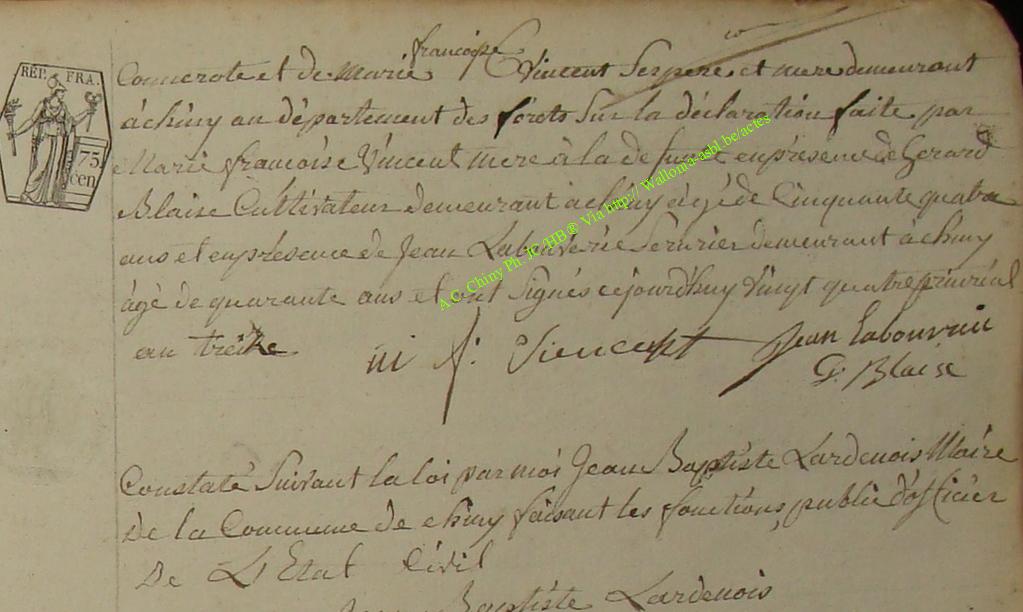 françoise
RÉP. FRA.
Connerote et de Marie Vincent Ses pere et mere demeurant
75
cen.
à chiny au département des forêts Sur la déclaration faite par
Marie françoise Vincent mere à la defunte en présence de Gerard
Blaise Cultivateur demeurant à chiny âgé de Cinquante quatre
ans et en présence de Jean Labouverie Serurier demeurant à chiny
âgé de quarante ans et ont Signés cejourd'huy Vingt quatre
an treize
m f. Viencent Jean Labouvrui
G. Blaise
Constaté Suivant la loi par moi Jean Baptiste Lardenois Maire
De la Commune de chiny faisant les fonctions, public d'officier
De L'Etat Civil
Jean Baptiste Lardenois
A.C. Chiny Ph. JC/HB ® Via http:// Wallonia-asbl.be/actes